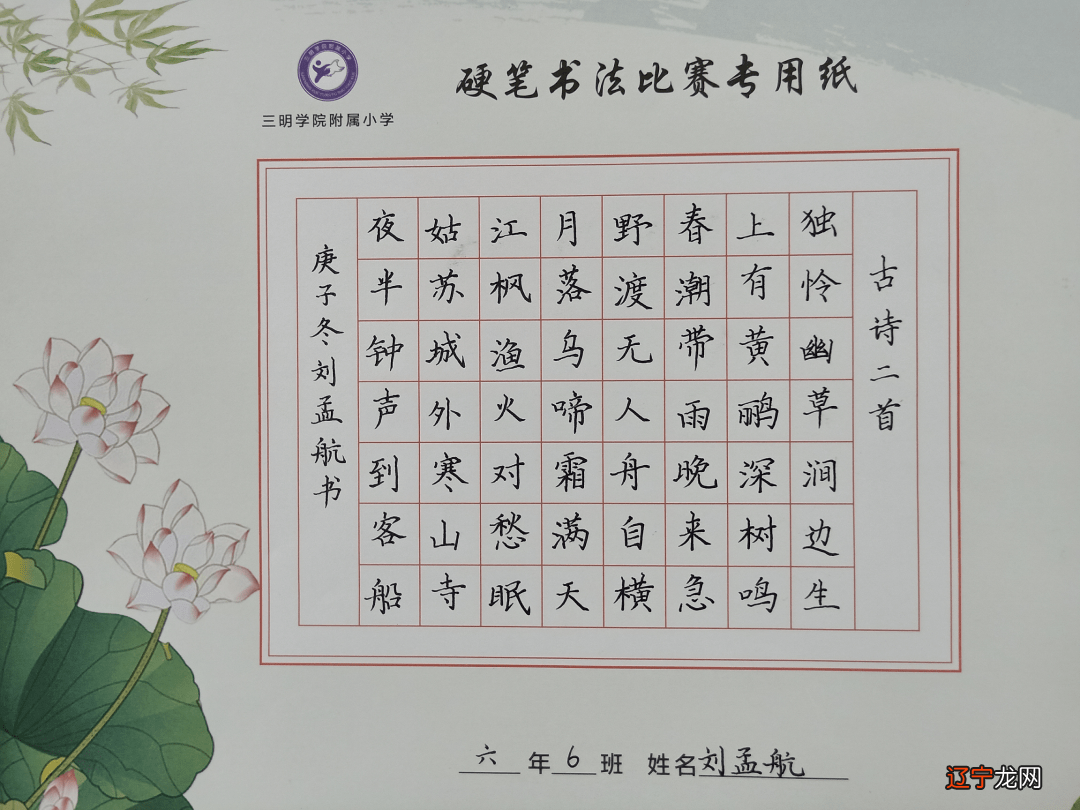 三明学院附属小学
硬笔书法比赛专用纸
古诗二首
独怜幽草涧边生
上有黄鹂深树鸣
春潮带雨晚来急
野渡无人舟自横
月落乌啼霜满天
江枫渔火对愁眠
姑苏城外寒山寺
夜半钟声到客船
庚子冬刘孟航书
六年6班 姓名刘孟航
辽宁龙网